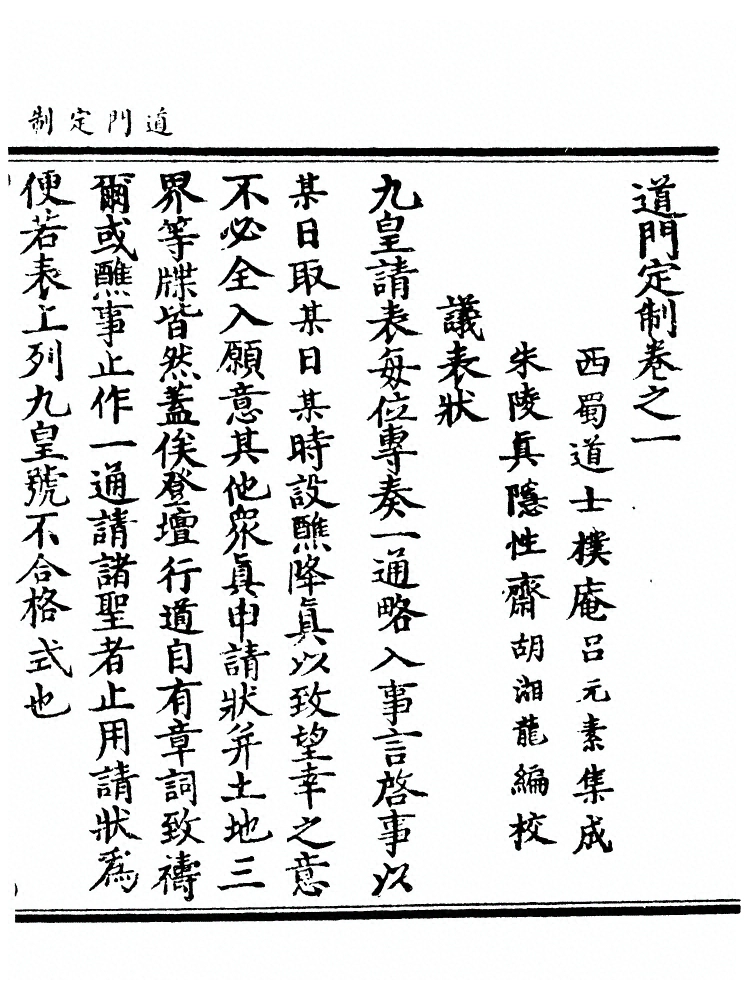 道門定制
道門定制卷之一
西蜀道士樸庵呂元素集成
朱陵眞隱性齋胡湘龍編校
議表狀
九皇請表每位專奏一通略入事言啓事以
某日取某日某時設醮降眞以致望幸之意
不必全入願意其他衆眞申請狀并土地三
界等牒皆然蓋俟登壇行道自有章詞致禱
爾或醮事止作一通請諸聖者止用請狀爲
便若表上列九皇號不合格式也